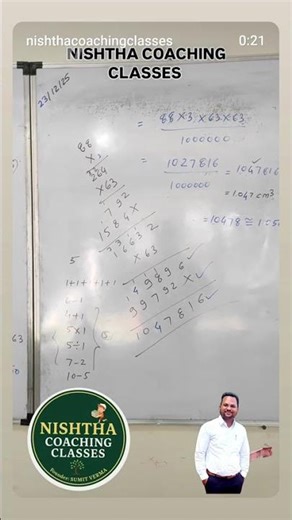 nishthacoachingclasses
0:21
NISHTHA COACHING
CLASSES
23/12/25
88
X3
264
X63
792
1584X
16632
X63
49896
99792X
1047816
= 88X3X63X63
1000000
= 1027816
1000000
= 1047816
= 1.047 cm³
= 10478 ≅ 1.05
5
1+1+1+1+1
6-1
4+1
5X1
5÷1
7-2
10-5
5
63
NISHTHA
COACHING
CLASSES
Founder: SUMIT VERMA